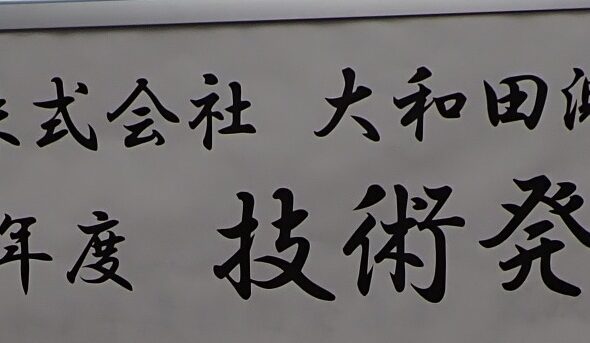 株式会社 大和田
年度 技術発